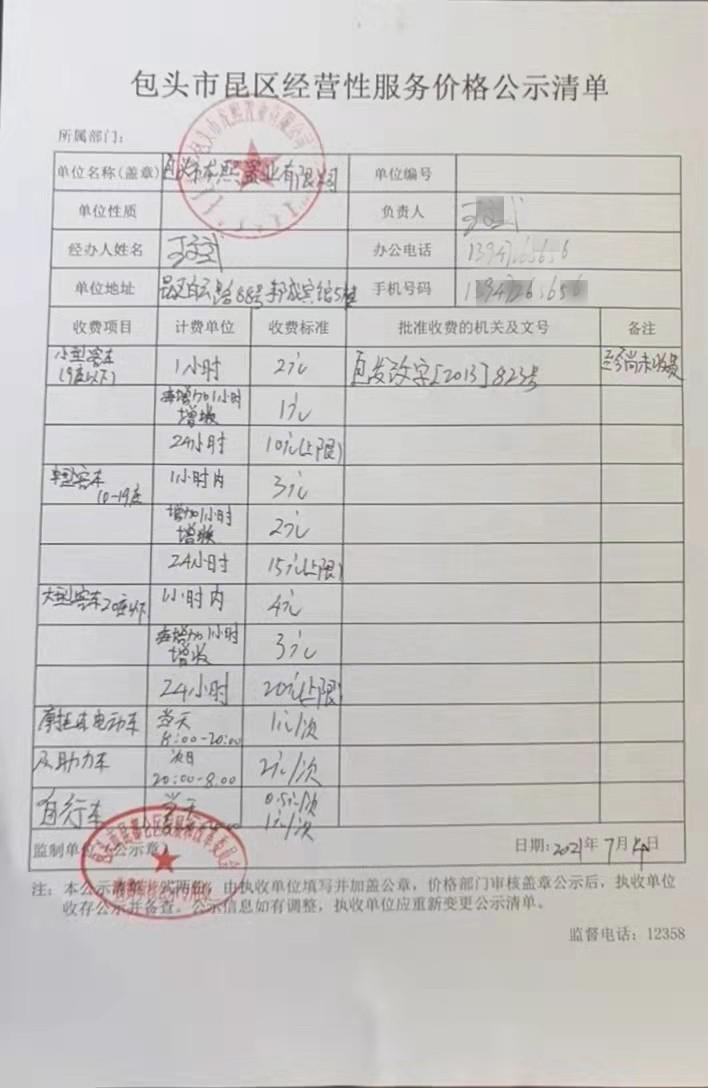 包头市昆区经营性服务价格公示清单
所属部门：
单位名称(盖章) 包头市 熙置业有限公司 单位编号
单位性质 负责人
经办人姓名 办公电话
单位地址 昆区白云路88号 宾馆 手机号码
收费项目 计费单位 收费标准 批准收费的机关及文号 备注
小型客车(9座以下) 1小时 2元 包发改字[2013]823号 至今尚未收费
每增加1小时增收 1元
24小时 10元(上限)
中型客车10-19座 1小时内 3元
增加1小时增收 2元
24小时 15元(上限)
大型客车20座以下 1小时内 4元
每增加1小时增收 3元
24小时 20元(上限)
摩托车电动车 当天8:00-20:00 1元/次
及助力车 次日20:00-8.00 2元/次
自行车 当天 0.5元/次
1元/次
监制单位(公示章) 日期：2021年7月 日
注：本公示清单一式两份，由执收单位填写并加盖公章，价格部门审核盖章公示后，执收单位
收存公示并备查。公示信息如有调整，执收单位应重新变更公示清单。
监督电话：12358